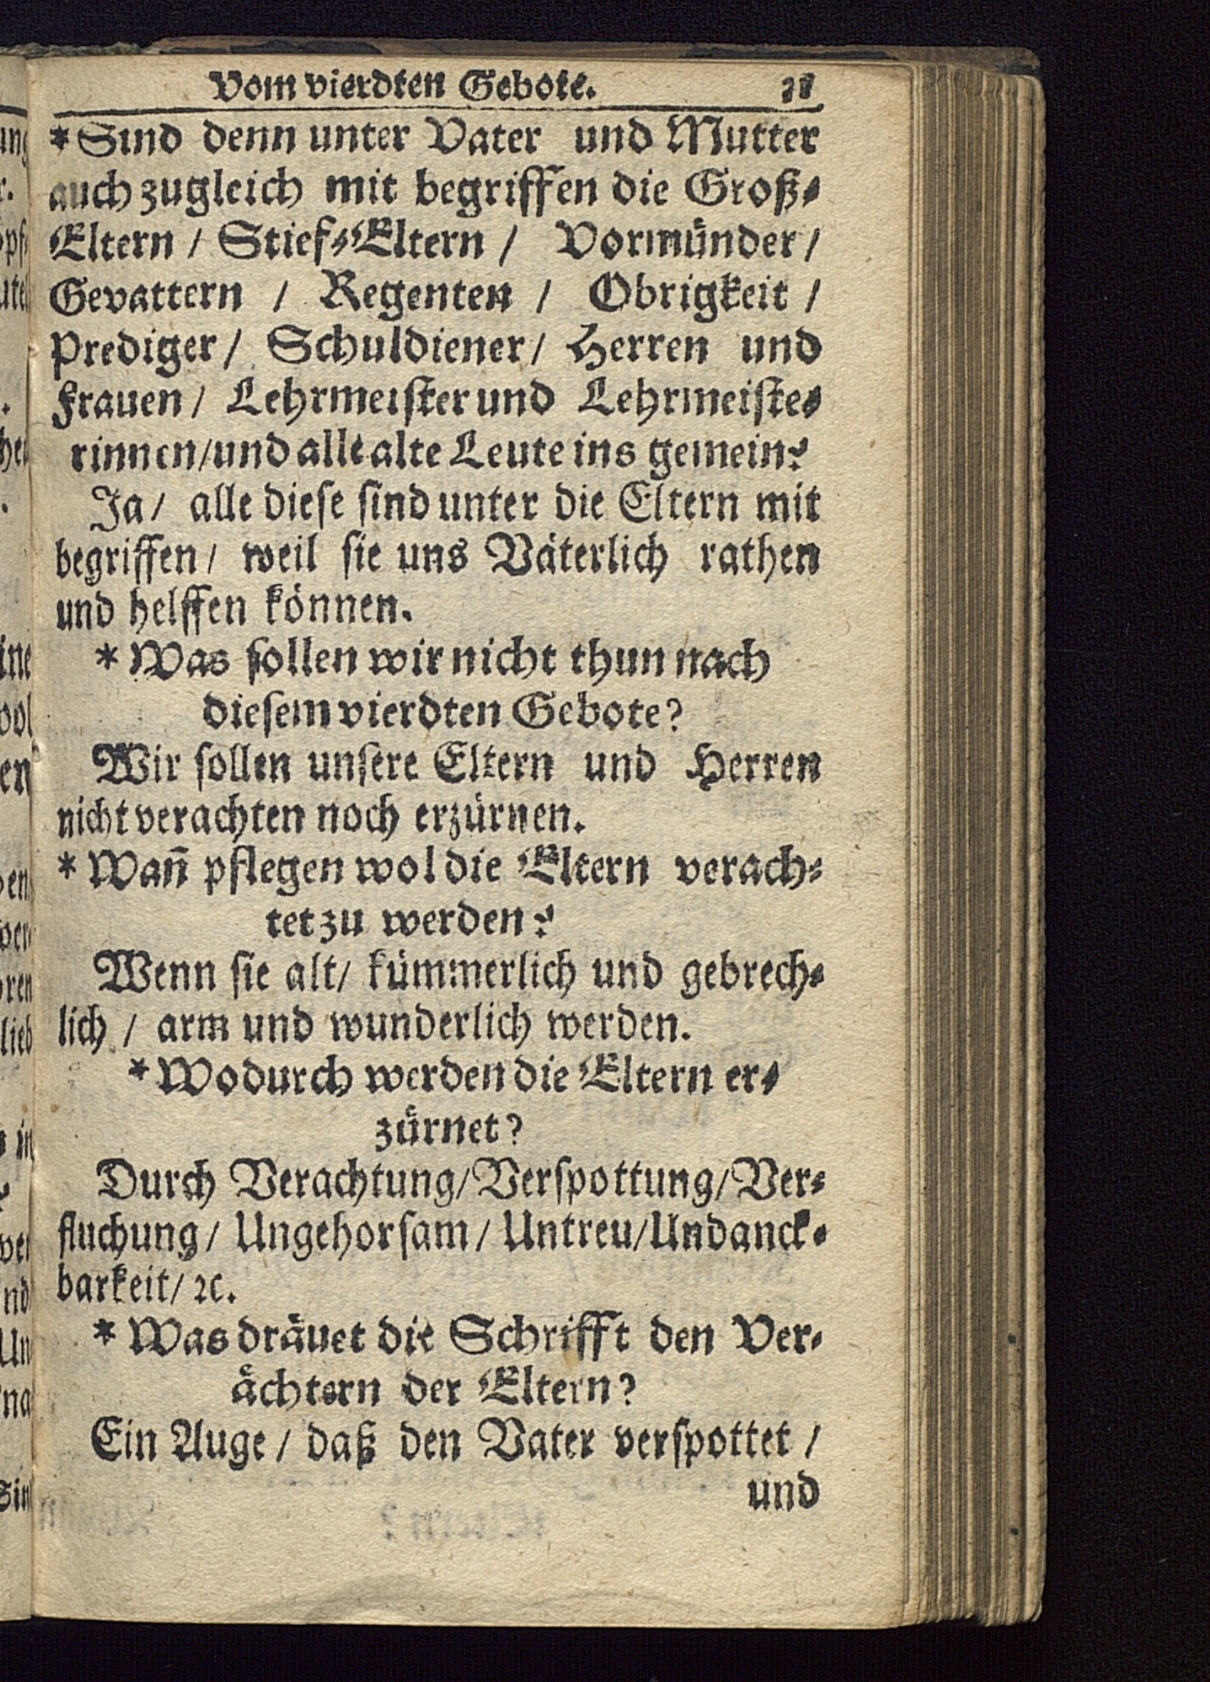 Vom vierdten Gebote.
*Sind denn unter Vater und Mutter
auch zugleich mit begriffen die Groß-
Eltern / Stief-Eltern / Vormünder /
Gevattern / Regenten / Obrigkeit /
Prediger / Schuldiener / Herren und
Frauen / Lehrmeister und Lehrmeiste-
rinnen/und alle alte Leute ins gemein?
Ja / alle diese sind unter die Eltern mit
begriffen / weil sie uns Väterlich rathen
und helffen können.
* Was sollen wir nicht thun nach
diesem vierdten Gebote?
Wir sollen unsere Eltern und Herren
nicht verachten noch erzürnen.
* Wañ pflegen wol die Eltern verach-
tet zu werden?
Wenn sie alt/ kümmerlich und gebrech-
lich / arm und wunderlich werden.
*Wodurch werden die Eltern er-
zürnet?
Durch Verachtung/Verspottung/Ver-
fluchung/ Ungehorsam/ Untreu/Undanck-
barkeit/ ꝛc.
* Was dräuet die Schrifft den Ver-
ächtern der Eltern?
Ein Auge / daß den Vater verspottet /
und